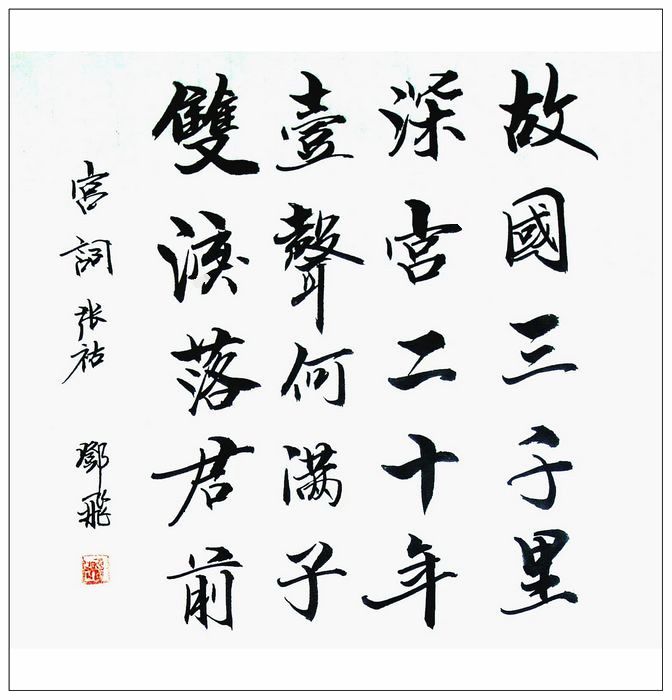 故國三千里
深宮二十年
壹聲何满子
雙淚落君前
宮詞 张祜
鄧飛